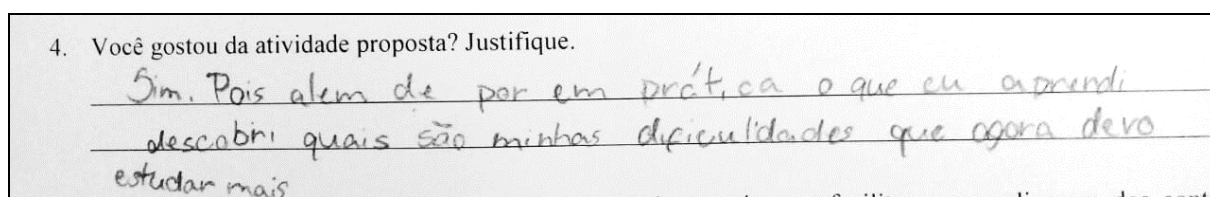 4. Você gostou da atividade proposta? Justifique.
Sim. Pois alem de por em prática o que eu aprendi
descobri quais são minhas dificuldades que agora devo
estudar mais